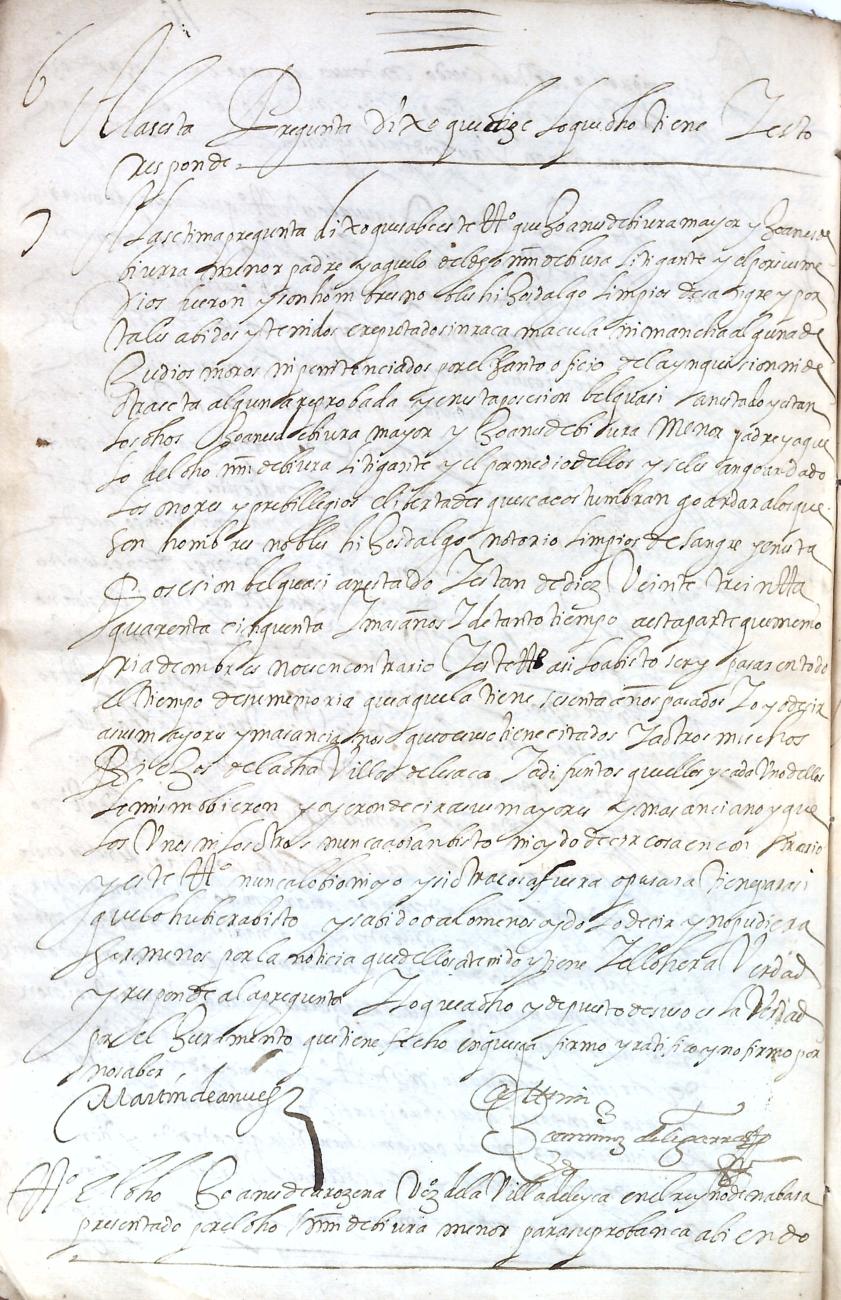 6 A la sesta Pregunta dixo que dize lo que dho tiene Y esto
responde
7 A la setima pregunta dixo que sabe este tt.º que Joanes de biura mayor y Joanes de
biurra menor padre y aguelo del dho mīn de biura litigante y el por su me
dios fueron y son hombres nobles hijosdalgo limpios de sangre y por
tales abidos y tenidos e reputados sin raca macula ni mancha alguna de
Judios moros ni penitenciados por el santo oficio de la ynquisicion ni de
otra seta alguna reprobada y en esta posesion bel quasi an estado y estan
los dhos Joanes de biura mayor y Joanes de biura menor padre y ague
lo del dho mīn de biura litigante y el por medio dellos y se les an goardado
los onores y prebillegios e libertades que se acostumbran goardar a los que
son hombres nobles hijosdalgo notorio limpios de sangre y en esta
Posesion bel quasi an estado Y estan de diez Veinte treintta
quarenta cinquenta Y mas años Y de tanto tiempo aesta parte que memo
ria de ombres no es en contrario Y este tt.º asi lo a bisto ser y pasar en todo
el tiempo de su memoria que aquella tiene de sesenta años pasados Y o yo decir
a sus mayores y mas ancianos que los tiene citados Y a otros muchos
Vezinos de la dha Villa de lesaca Y a difuntos que ellos y cada Uno dellos
lo mismo bieron y oyeron decir a sus mayores y mas anciano y que
los Unos ni los otros nunca abian bisto ni oydo decir cosa en contrario
y este tt.º nunca lo bio ni oyo y si otra cosa fuera o pasara tiene para si
que lo hubiera bisto y sabido o a lo menos oydo lo decir y no pudiera
ser menos por la noticia que dellos a tenido y tiene Y ello hera Verdad
y responde a la pregunta Y lo que a dho y depuesto de suso es la Verdad
por el Juramento que tiene fecho en que se a firmo y ratifico y no firmo por
no saber
Martin de anues
Ante mi
Joan de lizarra
tt.º El dho Joanes de arozena Vº de la Villa de lesaca en el reyno de nabara
presentado por el dho mīn de biura menor para su probanca abiendo